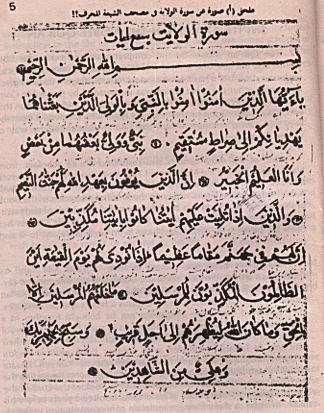 5
ملحق رقم ١ صورة عن سورة الولاية في مصحف الشيعة المحرف!!
سورة الولاية سبع آيات
بسم الله الرحمن الرحيم
يا أيها الذين امنوا امنوا بالنبي وبالولي الذين بعثناهما
يهديانكم إلى صراط مستقيم ۝ نبي وولي بعضهما من بعض
وأنا العليم الخبير ۝ إن الذين يوفون بعهد الله لهم جنت النعيم
۝ والذين إذا تليت عليهم آيتنا كانوا بآيتنا مكذبين ۝
إن لهم في جهنم مقاما عظيما إذا نودي لهم يوم القيمة أين
الظالمون المكذبون للمرسلين ۝ ما خلقهم المرسلين إلا
بالحق وما كان الله ليظهرهم إلى أجل قريب ۝ وسبح بحمد ربك
وعلي من الشاهدين ۝